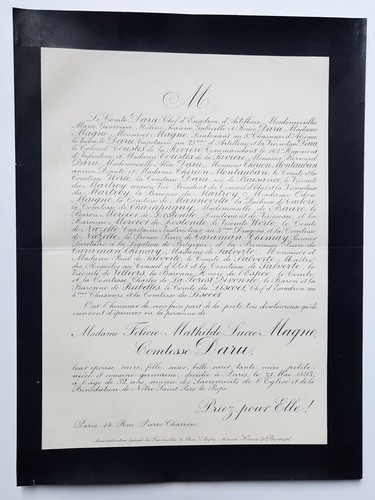 M
Le Comte Daru, Chef d'Escadron d'Artillerie, Mesdemoiselles
Marie Geneviève, Hélène, Jeanne, Gabrielle et Renée Daru, Madame
Magne, Monsieur Magne, Lieutenant au 5e Chasseurs d'Afrique,
le Vicomte Daru, Capitaine au 25ème d'Artillerie, et la Vicomtesse Daru,
le Colonel Coustis de la Rivière, Commandant le 162e Régiment
d'Infanterie, et Madame Coustis de la Rivière, Monsieur Bernard
Daru, Mademoiselle Alix Daru, Monsieur Chiron Montauban
ancien Député et Madame Montauban, le Comte et la
Comtesse Werlé, la Comtesse Daru, de Plaisance, le Comte
du Martroy, ancien Vice Président du Conseil d'Etat et la Vicomtesse
du Martroy, le Baron du Martroy, Madame Odon
Magne, la Comtesse de Manneville, la Duchesse de Cadore,
la Comtesse de Champagny, Mademoiselle de Baune, le
Baron Mercier de Lostende, Lieutenant de Vaisseau, et la
Baronne Mercier de Lostende, le Vicomte Werlé, le Comte
de Nazelle, Capitaine Instructeur au Dragons et la Comtesse
de Nazelle, le Prince Pierre de Caraman Chimay, Premier
Secrétaire à la Légation de Belgique, et la Princesse Pierre de
Caraman Chimay, Madame de Salverte, Monsieur et
Madame Paul de Salverte, le Comte de Salverte, Maître
des Requêtes au Conseil d'Etat et la Comtesse de Salverte, le
Vicomte de Villiers, la Baronne Henri de L'Espée, le Comte
et la Comtesse Charles de La Forest Divonne, le Baron et la
Baronne de Ruvelles, le Comte du Liscoët, Chef d'Escadron au
Chasseurs et la Comtesse du Liscoët
Ont l'honneur de vous faire part de la perte très douloureuse qu'ils
viennent d'éprouver en la personne de
Madame Félicie Mathilde Lucie Magne,
Comtesse Daru,
leur épouse, mère, fille, sœur, belle sœur, tante, nièce, petite
nièce et cousine germaine, décédée à Paris, le 31 Mai 1893,
à l'âge de 32 ans, munie des Sacrements de L'Eglise et de la
Bénédiction de Notre Saint Père le Pape.
Priez pour Elle!
Paris 44 Rue Pierre Charron